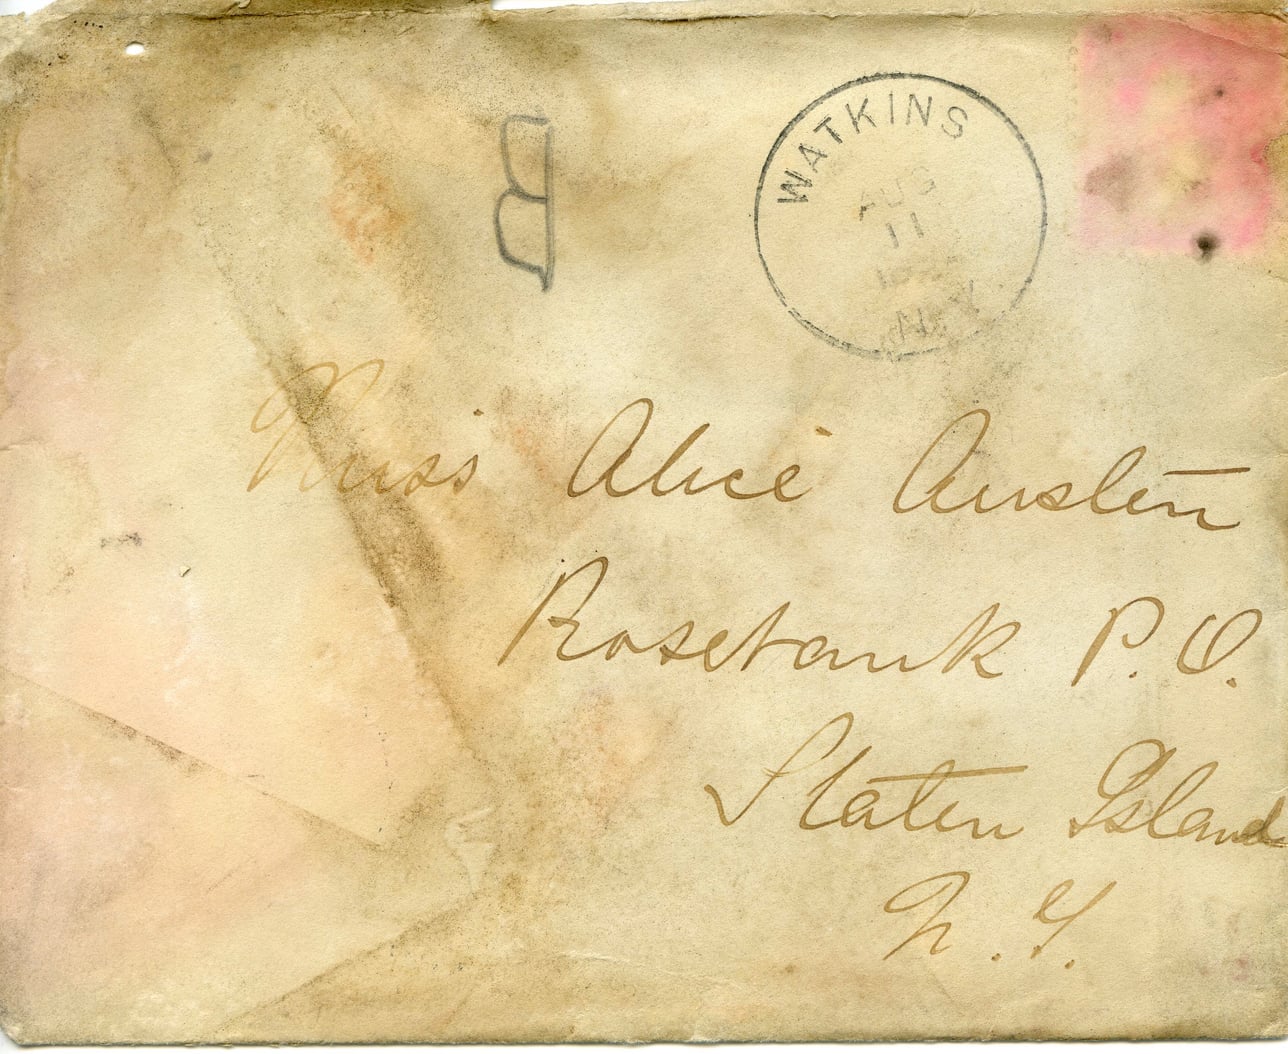 B
WATKINS
AUG
11
N.Y.
Miss Alice Austen
Rosebank P.O.
Staten Island
N.Y.